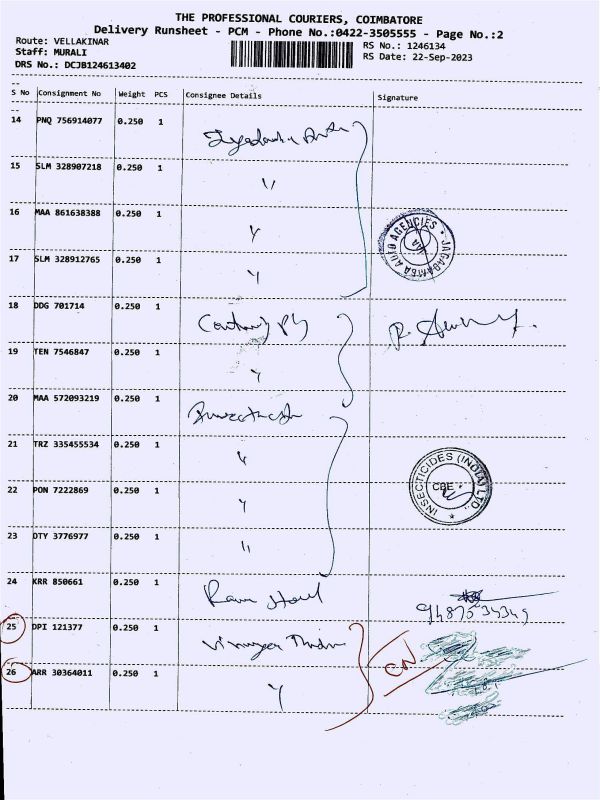 THE PROFESSIONAL COURIERS, COIMBATORE
Delivery Runsheet - PCM - Phone No.:0422-3505555 - Page No.:2
Route: VELLAKINAR
Staff: MURALI
DRS No.: DCJB124613402
RS No.: 1246134
RS Date: 22-Sep-2023
S No Consignment No Weight PCS Consignee Details Signature
14 PNQ 756914077 0.250 1
15 SLM 328907218 0.250 1 "
16 MAA 861638388 0.250 1 "
JAGADAMBA AUTO AGENCIES
17 SLM 328912765 0.250 1 "
18 DDG 701714 0.250 1
19 TEN 7546847 0.250 1 "
20 MAA 572093219 0.250 1
21 TRZ 335455534 0.250 1 "
INSECTICIDES (INDIA) LTD.
CBE
22 PON 7222869 0.250 1 "
23 DTY 3776977 0.250 1 "
24 KRR 850661 0.250 1
25 DPI 121377 0.250 1
26 ARR 30364011 0.250 1 "
CN